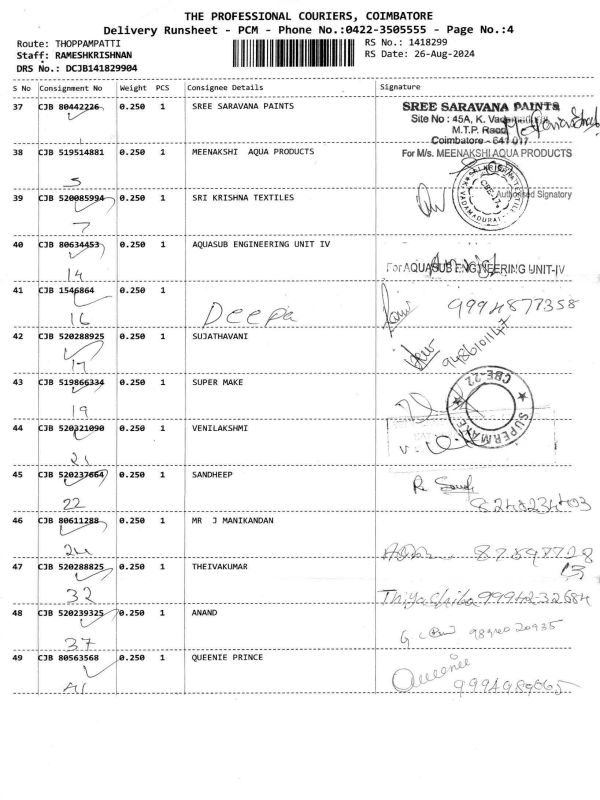 THE PROFESSIONAL COURIERS, COIMBATORE
Delivery Runsheet - PCM - Phone No.:0422-3505555 - Page No.:4
Route: THOPPAMPATTI RS No.: 1418299
Staff: RAMESHKRISHNAN RS Date: 26-Aug-2024
DRS No.: DCJB141829904
S No Consignment No Weight PCS Consignee Details Signature
37 CJB 80442226 0.250 1 SREE SARAVANA PAINTS
SREE SARAVANA PAINTS
Site No : 45A, K.
M.T.P. Road
Coimbatore - 641 017
38 CJB 519514881 0.250 1 MEENAKSHI AQUA PRODUCTS
For M/s. MEENAKSHI AQUA PRODUCTS
5
Authorised Signatory
39 CJB 520085994 0.250 1 SRI KRISHNA TEXTILES
7
40 CJB 80634453 0.250 1 AQUASUB ENGINEERING UNIT IV
14
For AQUASUB ENGINEERING UNIT-IV
41 CJB 1546864 0.250 1
16 Deepa 9994877358
42 CJB 520288925 0.250 1 SUJATHAVANI
17 9486101147
43 CJB 519866334 0.250 1 SUPER MAKE
19
CBE-22
SUPERMAKE
44 CJB 520321090 0.250 1 VENILAKSHMI
21
45 CJB 520237664 0.250 1 SANDHEEP
22
46 CJB 80611288 0.250 1 MR J MANIKANDAN
24
47 CJB 520288825 0.250 1 THEIVAKUMAR
32
48 CJB 520239325 0.250 1 ANAND
37
49 CJB 80563568 0.250 1 QUEENIE PRINCE
41 Queenie